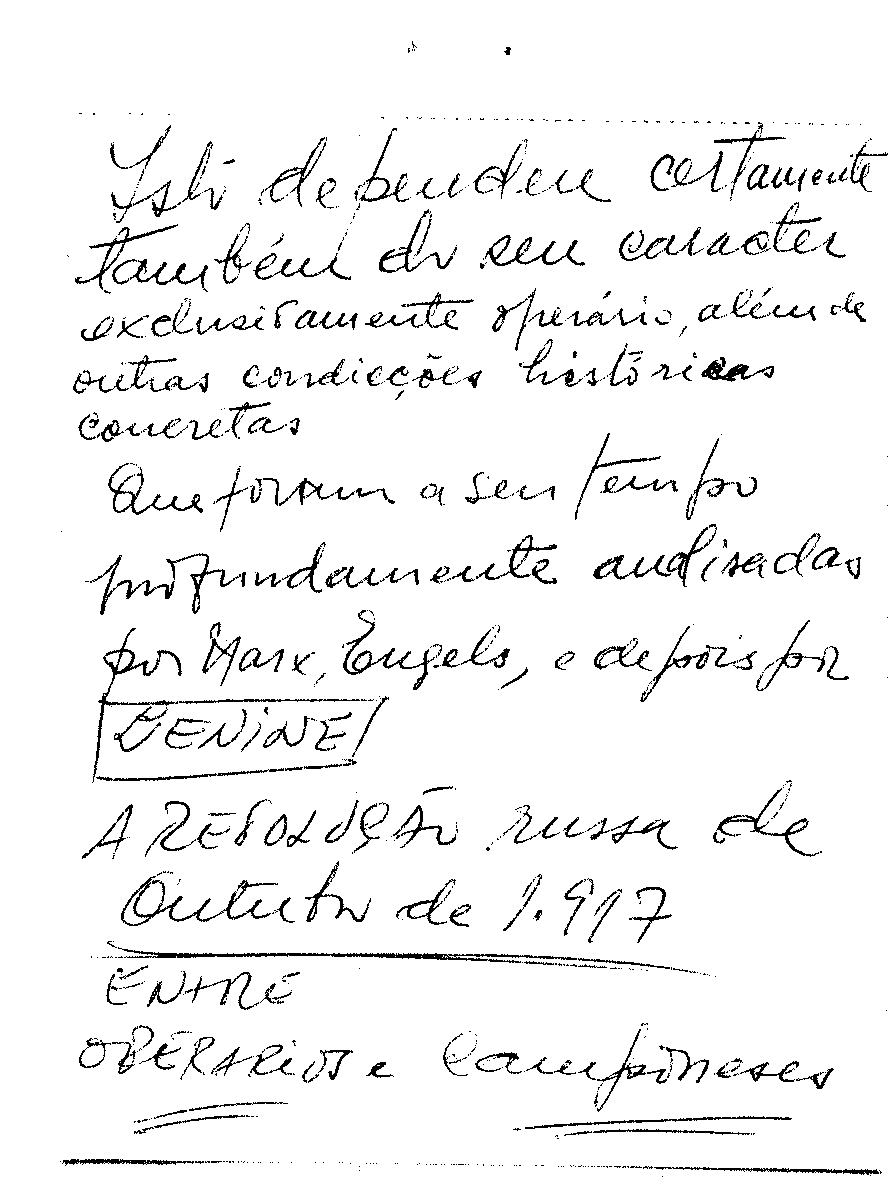 Isto dependeu certamente
também do seu caracter
exclusivamente operário, além de
outras condicções históricas
concretas
Que foram a seu tempo
profundamente analisadas
por Marx, Engels, e depois por
LENINE
A REVOLUÇÃO russa de
Outubro de 1.917
ENTRE
OPERARIOS e Camponeses